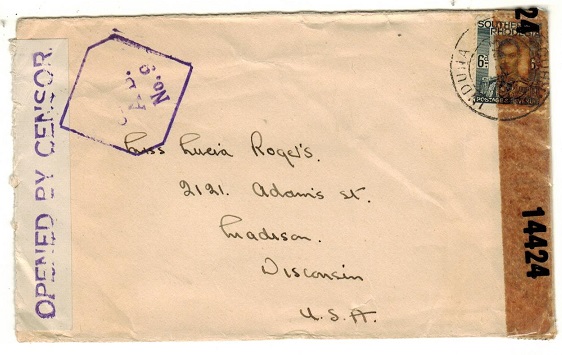 OPENED BY CENSOR
No. 3
INDUNA
SOUTHERN
RHODESIA
6D
POSTAGE & REVENUE
24
14424
Miss Lucia Rogel's.
2121. Adam's st.
Madison.
Wisconsin
U.S.A.